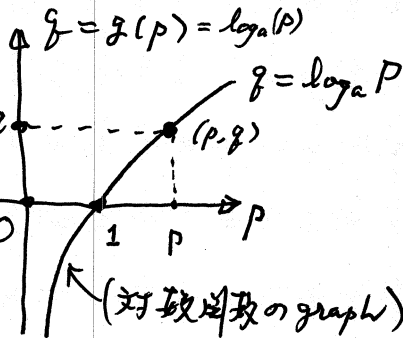 q = g(p) = logₐ(p)
q = logₐ P
(p,q)
0
1
p
p
(対数関数の graph)